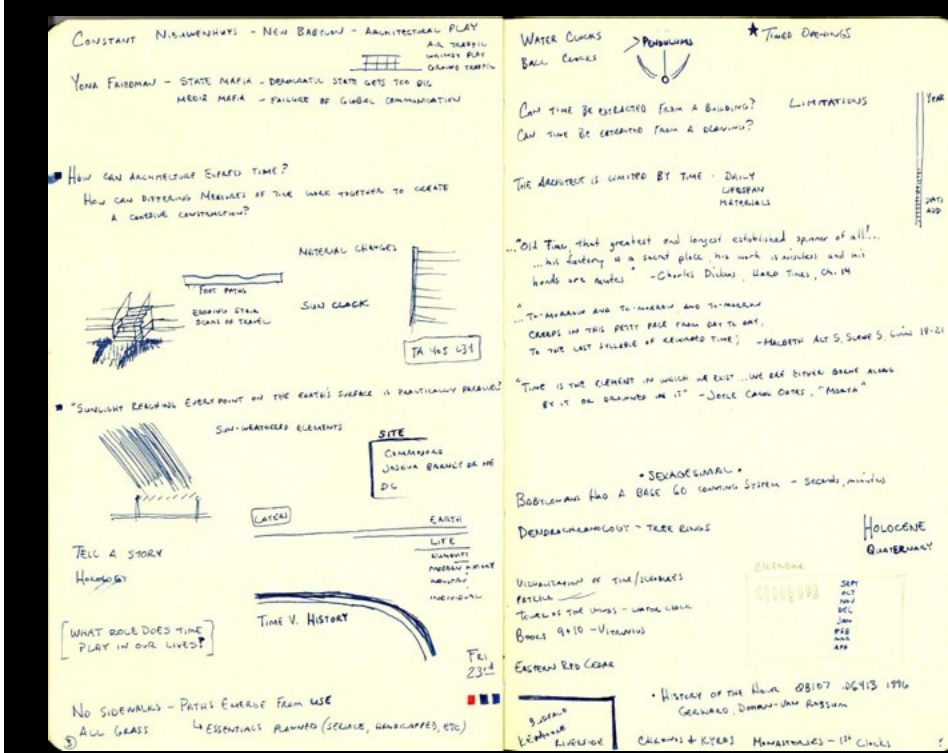 CONSTANT NIEUWENHUYS - NEW BABYLON - ARCHITECTURAL PLAY
AIR TRAFFIC
WHIMSY PLAY
GROUND TRAFFIC
YONA FRIEDMAN - STATE MAFIA - DEMOCRATIC STATE GETS TOO BIG
MEDIA MAFIA - FAILURE OF GLOBAL COMMUNICATION
HOW CAN ARCHITECTURE EXPRESS TIME?
HOW CAN DIFFERING MEASURES OF TIME WORK TOGETHER TO CREATE
A COHESIVE CONSTRUCTION?
MATERIAL CHANGES
FOOT PATHS
ERODING STAIR
SCARS OF TRAVEL
SUN CLOCK
TA 405 L31
"SUNLIGHT REACHING EVERY POINT ON THE EARTH'S SURFACE IS PRACTICALLY PARALLEL"
SUN-WEATHERED ELEMENTS
SITE
COMMODORE
JOSHUA BARNEY DR NE
DC
LAYERS
EARTH
LIFE
HUMANITY
MODERN HISTORY
INDIVIDUAL
TELL A STORY
HOROLOGY
TIME V. HISTORY
[WHAT ROLE DOES TIME
PLAY IN OUR LIVES?]
FRI
23rd
NO SIDEWALKS - PATHS EMERGE FROM USE
ALL GRASS ESSENTIALS PLANNED (SERVICE, HANDICAPPED, ETC)
WATER CLOCKS
BALL CLOCKS
> PENDULUMS
★ TIMED OPENINGS
CAN TIME BE EXTRACTED FROM A BUILDING?
CAN TIME BE EXTRACTED FROM A DRAWING?
LIMITATIONS
YEAR
DAYS
ADD
THE ARCHITECT IS LIMITED BY TIME - DAILY
LIFESPAN
MATERIALS
..."Old Time, that greatest and longest established spinner of all!...
...his factory is a secret place, his work is noiseless and his
hands are mutes" - Charles Dickens, HARD TIMES, Ch. 14
"...TO-MORROW AND TO-MORROW AND TO-MORROW
CREEPS IN THIS PETTY PACE FROM DAY TO DAY,
TO THE LAST SYLLABLE OF RECORDED TIME; - MACBETH ACT 5, SCENE 5, LINES 19-21
"TIME IS THE ELEMENT IN WHICH WE EXIST... WE ARE EITHER BORNE ALONG
BY IT OR DROWNED IN IT" - JOYCE CAROL OATES, "MARYA"
• SEXAGESIMAL •
BABYLONIANS HAD A BASE 60 COUNTING SYSTEM - SECONDS, MINUTES
DENDROCHRONOLOGY - TREE RINGS
HOLOCENE
QUATERNARY
CALENDAR
SEPT
OCT
NOV
DEC
JAN
FEB
MAR
APR
VISUALIZATION OF TIME/
TOWER OF THE WINDS - WATER CLOCK
BOOKS 9+10 - VITRUVIUS
EASTERN RED CEDAR
RIVERSIDE
• HISTORY OF THE HOUR QB107 .D6413 1996
GERHARD, DOHRN-VAN ROSSUM
CHRONOS + KYROS MONASTERIES - 1st CLOCKS